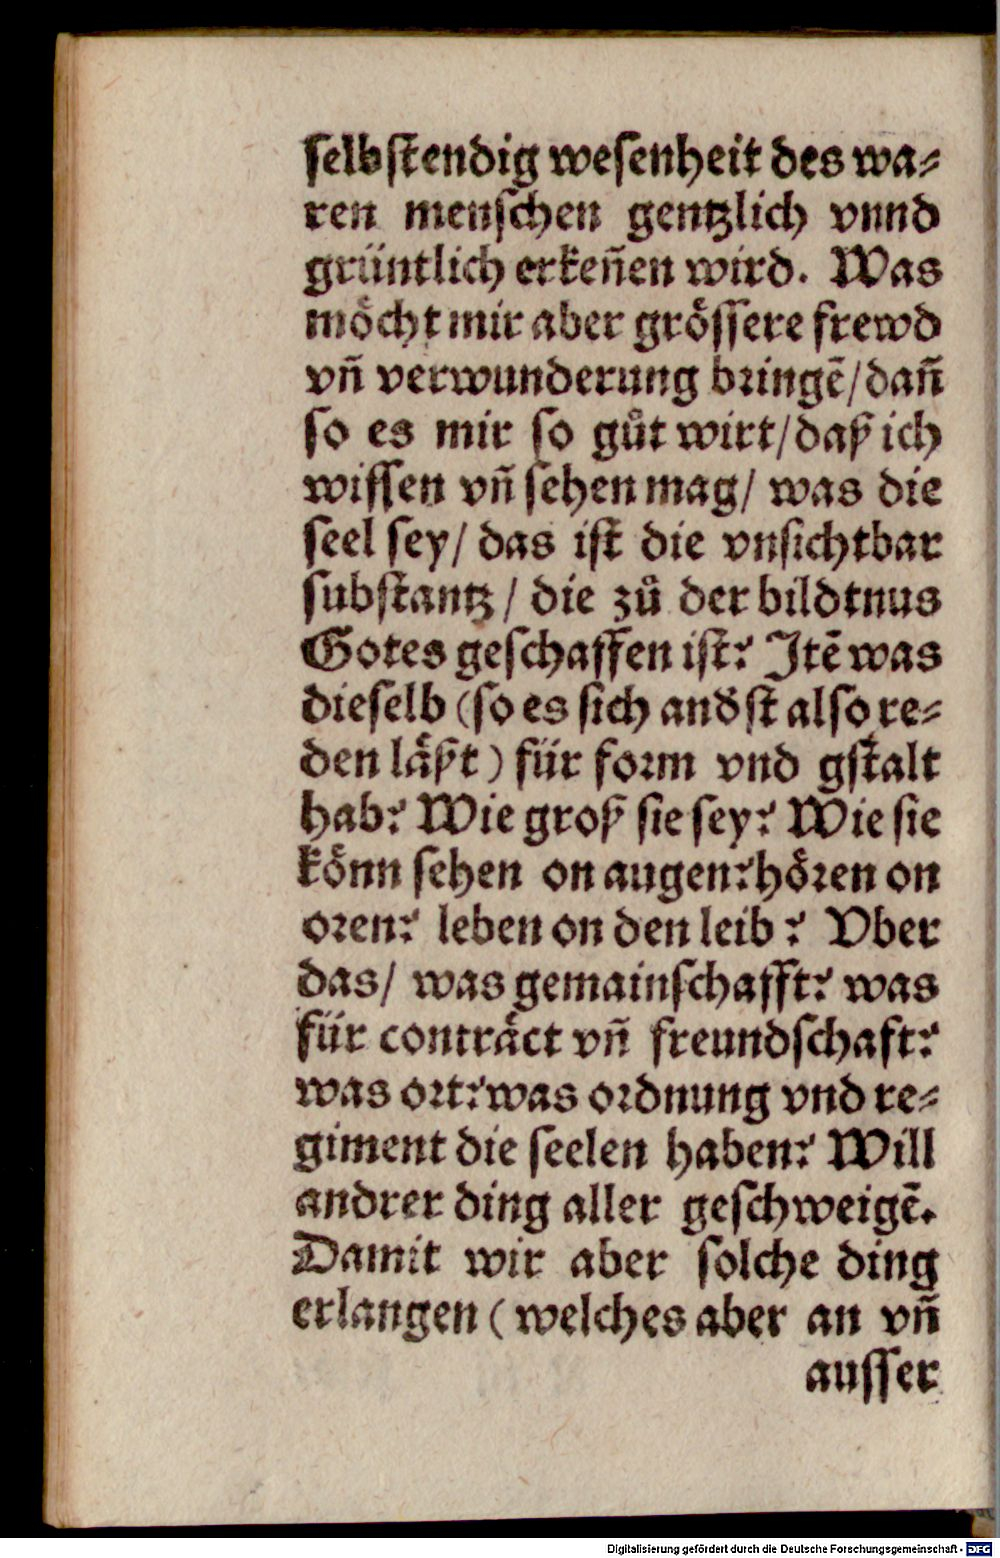 selbstendig wesenheit des wa⸗
ren menschen gentzlich vnnd
grüntlich erkeñen wird. Was
möcht mir aber grössere frewd
vñ verwunderung bringē/dañ
so es mir so gůt wirt/daß ich
wissen vñ sehen mag/ was die
seel sey/ das ist die vnsichtbar
substantz/ die zů der bildtnus
Gotes geschaffen ist? Itē was
dieselb (so es sich andst also re⸗
den läßt) für form vnd gstalt
hab? Wie groß sie sey? Wie sie
könn sehen on augen?hören on
oren? leben on den leib? Vber
das/ was gemainschafft? was
für conträct vñ freundschaft?
was ort?was ordnung vnd re⸗
giment die seelen haben? Will
andrer ding aller geschweigē.
Damit wir aber solche ding
erlangen (welches aber an vñ
ausser
Digitalisierung gefördert durch die Deutsche Forschungsgemeinschaft - DFG